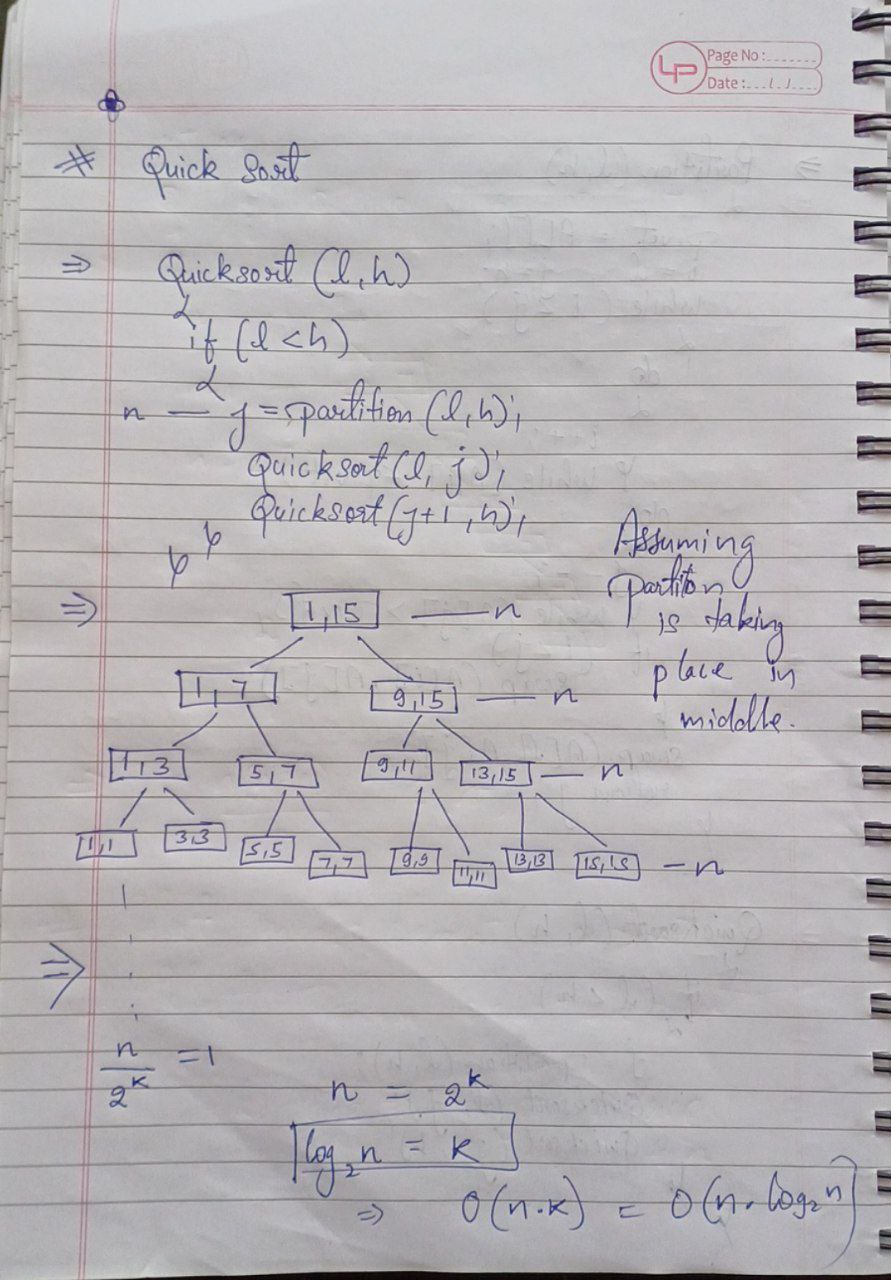 LP Page No :.......
Date :.... / /....
* Quick Sort
⇒ Quicksort (l,h)
{
if (l<h)
{
n — j = partition (l,h);
Quicksort (l, j);
Quicksort (j+1, h);
} }
Assuming
partiton
is taking
place in
middle.
⇒ 1,15 — n
1,7 9,15 — n
1,3 5,7 9,11 13,15 — n
1,1 3,3 5,5 7,7 9,9 11,11 13,13 15,15 — n
⇒
n/2^k = 1
n = 2^k
log₂n = k
⇒ O(n.k) = O(n.log₂n)